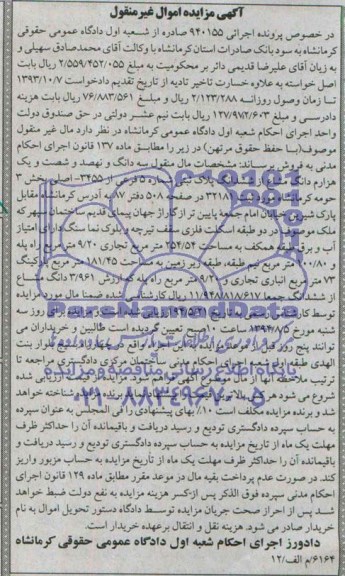 آگهی مزایده اموال غیرمنقول
در خصوص پرونده اجرائی ۹۴۰۱۵۵ صادره از شعبه اول دادگاه عمومی حقوقی
کرمانشاه به سود بانک صادرات استان کرمانشاه با وکالت آقای محمدصادق سهیلی و
به زیان آقای علیرضا قدیمی دائر بر محکومیت به مبلغ ۲/۵۵۹/۴۵۲/۰۵۵ ریال بابت
اصل خواسته به علاوه خسارت تاخیر تادیه از تاریخ تقدیم دادخواست ۱۳۹۳/۱۰/۷
تا زمان وصول روزانه ۲/۱۲۳/۲۸۸ ریال و مبلغ ۷۶/۸۸۳/۵۶۱ ریال بابت هزینه
دادرسی و مبلغ ۱۲۷/۹۷۲/۶۰۳ ریال بابت نیم عشر دولتی در حق صندوق دولت
واحد اجرای احکام شعبه اول دادگاه عمومی کرمانشاه در نظر دارد مال غیر منقول
موصوف (با حفظ حقوق مرتهن) در زیر را مطابق ماده ۱۳۷ قانون اجرای احکام
مدنی به فروش برساند: مشخصات مال منقول سه دانگ و نهصد و شصت و یک
هزارم دانگ مشاع از ششدانگ پلاک ثبتی شماره ۵ فرعی از ۳۴۵۵- اصلی بخش ۳
حومه کرمانشاه مورد ثبت ۳۲۱۸۷ در صفحه ۵۰۸ دفتر ۱۸۷ به آدرس کرمانشاه مقابل
پارک شیرین خیابان امام جمعه پایین تر از گاراژ جهان پیمای قدیم ساختمان سپهر که
ملک موصوف در دو طبقه اسکلت فلزی سقف تیرچه و بلوک نما سنگ دارای امتیاز
آب و برق طبقه همکف به مساحت ۲۵۴/۵۴ متر مربع تجاری ۹/۲۰ متر مربع راه پله
و ۱۰۰/۸۰ متر مربع نیم طبقه، طبقه زیر زمین به مساحت ۱۸۱/۴۵ متر مربع پارکینگ
۷۳ متر مربع انباری تجاری و ۹/۲۰ متر مربع راه پله که ارزش ۳/۹۶۱ دانگ مشاع
از ششدانگ جمعا ۱۱/۹۴۸/۸۱۸/۶۱۷ ریال کارشناسی شده ضمنا مال مورد مزایده
توسط
شنبه مورخ ۱۳۹۴/۸/۵ ساعت ۱۰ صبح تعیین گردیده است طالبین و خریداران می
توانند پنج روز قبل از
الهدی طبقه اول شعبه اجرای احکام مدنی ساختمان مرکزی دادگستری مراجعه تا
ترتیب ملاحظه آنها از مال موضوع آگهی فراهم شود. مزایده از قیمت ارزیابی شده
شروع می شود هر
شد و برنده مزایده مکلف است ۱۰٪ بهای پیشنهادی را فی المجلس به عنوان سپرده
به حساب سپرده دادگستری تودیع و رسید دریافت و باقیمانده آن را حداکثر ظرف
مهلت یک ماه از تاریخ مزایده به حساب سپرده دادگستری تودیع و رسید دریافت و
باقیمانده آن را حداکثر ظرف مهلت یک ماه از تاریخ مزایده به حساب مزبور واریز
کند. در صورت عدم پرداخت بقیه مال در موعد مقرر مطابق ماده ۱۲۹ قانون اجرای
احکام مدنی سپرده فوق الذکر پس از کسر هزینه مزایده به نفع دولت ضبط خواهد
شد پس از احراز صحت جریان مزایده توسط دادگاه دستور تحویل اموال به نام
خریدار صادر می شود. هزینه نقل و انتقال برعهده خریدار است.
دادورز اجرای احکام شعبه اول دادگاه عمومی حقوقی کرمانشاه
۶۱۶۴/م الف/۱۲
پایگاه اطلاع رسانی مناقصه و مزایده
۰۲۱-۸۸۳۴۹۶۷۰-۵